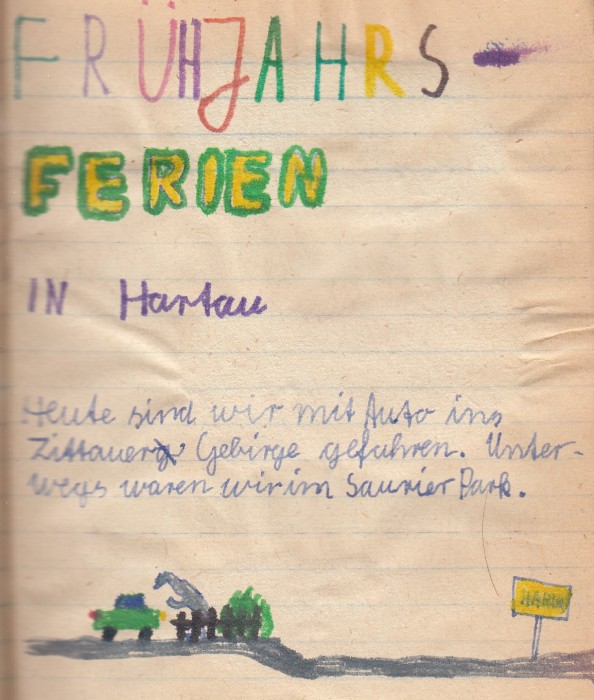 FRÜHJAHRS-
FERIEN
IN Hartau
Heute sind wir mit Auto ins
Zittauer Gebirge gefahren. Unter-
wegs waren wir im Saurier Park.
HARTAU